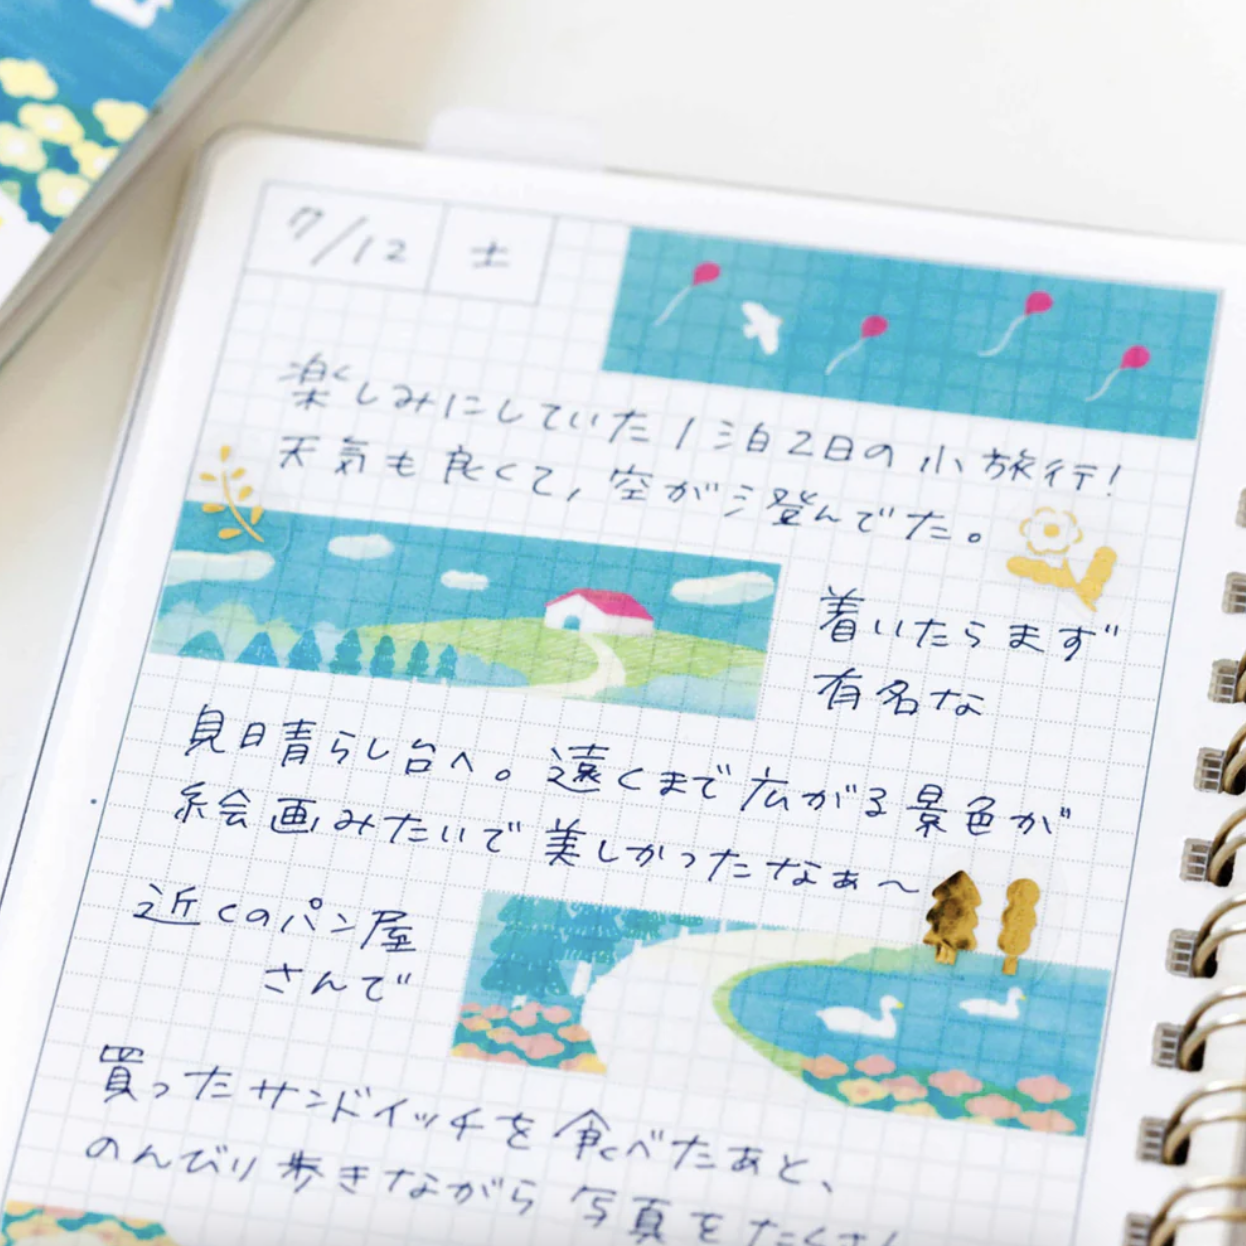 7/12 土
楽しみにしていた1泊2日の小旅行!
天気も良くて、空が澄んでた。
着いたらまず
有名な
見晴らし台へ。遠くまで広がる景色が
絵画みたいで美しかったなぁ〜
近くのパン屋
さんで
買ったサンドイッチを食べたあと、
のんびり歩きながら写真をたくさん